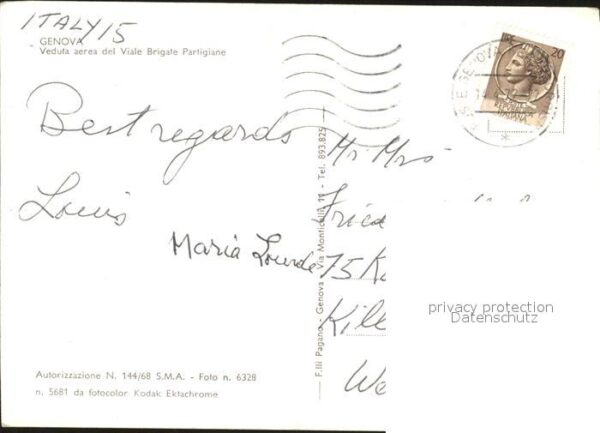 ITALY/5
GENOVA
Veduta aerea del Viale Brigate Partigiane
Best regards
Louis
Maria Lourdes
Autorizzazione N. 144/68 S.M.A. - Foto n. 6328
n. 5681 da fotocolor Kodak Ektachrome
F.lli Pagano - Genova - Via Monticelli, 11 - Tel. 893.825
GENOVA
LIRE 20
POSTE
REPUBBLICA
ITALIANA
Mr Mrs
Fried
75 K
Kil
We
privacy protection
Datenschutz